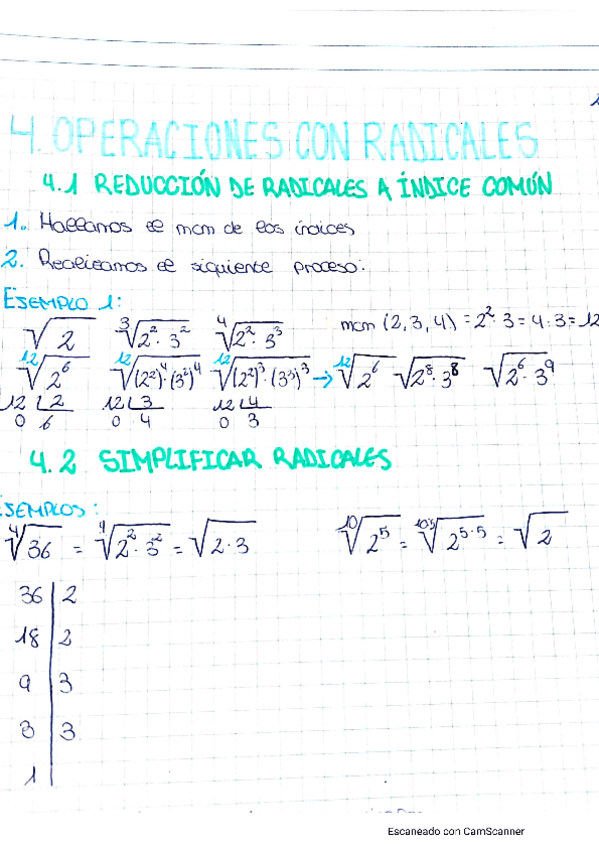 4. OPERACIONES CON RADICALES
4.1 REDUCCIÓN DE RADICALES A ÍNDICE COMÚN
1. Hallamos el mcm de los índices
2. Realizamos el siguiente proceso:
EJEMPLO 1:
√2 ∛(2²·3²) ∜(2²·3³) mcm (2,3,4) = 2²·3 = 4·3 = 12
¹²√2⁶ ¹²√((2²)⁴·(3²)⁴) ¹²√((2²)³·(3³)³) → ¹²√2⁶ √(2⁸·3⁸) √(2⁶·3⁹)
12 | 2 12 | 3 12 | 4
0 6 0 4 0 3
4.2 SIMPLIFICAR RADICALES
EJEMPLOS:
∜36 = ∜(2²·3²) = √(2·3) ¹⁰√2⁵ = ¹⁰˙⁵√2⁵˙⁵ = √2
36 | 2
18 | 2
9 | 3
3 | 3
1 |
Escaneado con CamScanner